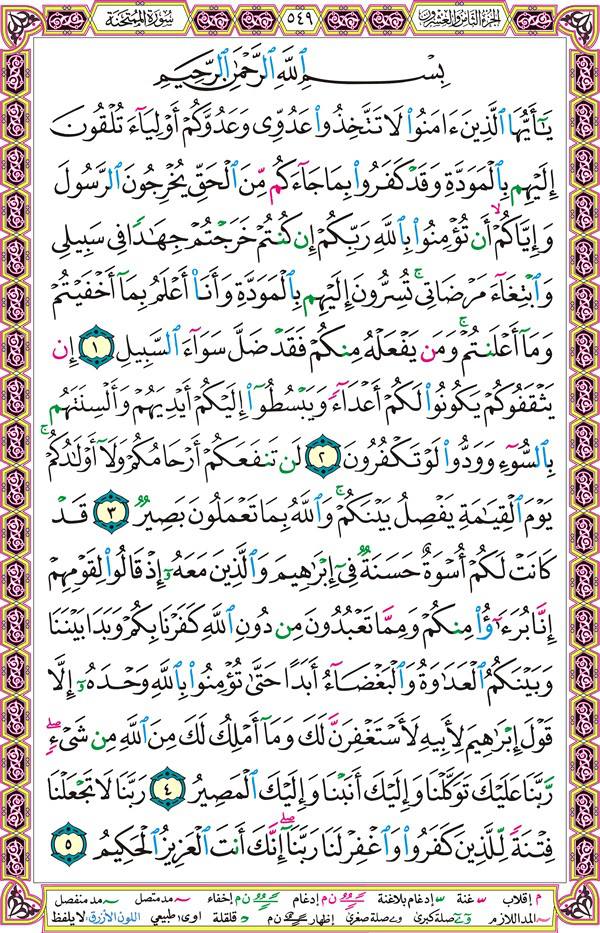 الجزء الثامن والعشرون ٥٤٩ سورة الممتحنة
بِسْمِ ٱللَّهِ ٱلرَّحْمَٰنِ ٱلرَّحِيمِ
يَٰٓأَيُّهَا ٱلَّذِينَ ءَامَنُوا۟ لَا تَتَّخِذُوا۟ عَدُوِّى وَعَدُوَّكُمْ أَوْلِيَآءَ تُلْقُونَ
إِلَيْهِم بِٱلْمَوَدَّةِ وَقَدْ كَفَرُوا۟ بِمَا جَآءَكُم مِّنَ ٱلْحَقِّ يُخْرِجُونَ ٱلرَّسُولَ
وَإِيَّاكُمْ ۙ أَن تُؤْمِنُوا۟ بِٱللَّهِ رَبِّكُمْ إِن كُنتُمْ خَرَجْتُمْ جِهَٰدًا فِى سَبِيلِى
وَٱبْتِغَآءَ مَرْضَاتِى ۚ تُسِرُّونَ إِلَيْهِم بِٱلْمَوَدَّةِ وَأَنَا۠ أَعْلَمُ بِمَآ أَخْفَيْتُمْ
وَمَآ أَعْلَنتُمْ ۚ وَمَن يَفْعَلْهُ مِنكُمْ فَقَدْ ضَلَّ سَوَآءَ ٱلسَّبِيلِ ١ إِن
يَثْقَفُوكُمْ يَكُونُوا۟ لَكُمْ أَعْدَآءً وَيَبْسُطُوٓا۟ إِلَيْكُمْ أَيْدِيَهُمْ وَأَلْسِنَتَهُم
بِٱلسُّوٓءِ وَوَدُّوا۟ لَوْ تَكْفُرُونَ ٢ لَن تَنفَعَكُمْ أَرْحَامُكُمْ وَلَآ أَوْلَٰدُكُمْ ۚ
يَوْمَ ٱلْقِيَٰمَةِ يَفْصِلُ بَيْنَكُمْ ۚ وَٱللَّهُ بِمَا تَعْمَلُونَ بَصِيرٌ ٣ قَدْ
كَانَتْ لَكُمْ أُسْوَةٌ حَسَنَةٌ فِىٓ إِبْرَٰهِيمَ وَٱلَّذِينَ مَعَهُۥٓ إِذْ قَالُوا۟ لِقَوْمِهِمْ
إِنَّا بُرَءَٰٓؤُا۟ مِنكُمْ وَمِمَّا تَعْبُدُونَ مِن دُونِ ٱللَّهِ كَفَرْنَا بِكُمْ وَبَدَا بَيْنَنَا
وَبَيْنَكُمُ ٱلْعَدَٰوَةُ وَٱلْبَغْضَآءُ أَبَدًا حَتَّىٰ تُؤْمِنُوا۟ بِٱللَّهِ وَحْدَهُۥٓ إِلَّا
قَوْلَ إِبْرَٰهِيمَ لِأَبِيهِ لَأَسْتَغْفِرَنَّ لَكَ وَمَآ أَمْلِكُ لَكَ مِنَ ٱللَّهِ مِن شَىْءٍ ۖ
رَّبَّنَا عَلَيْكَ تَوَكَّلْنَا وَإِلَيْكَ أَنَبْنَا وَإِلَيْكَ ٱلْمَصِيرُ ٤ رَبَّنَا لَا تَجْعَلْنَا
فِتْنَةً لِّلَّذِينَ كَفَرُوا۟ وَٱغْفِرْ لَنَا رَبَّنَآ ۖ إِنَّكَ أَنتَ ٱلْعَزِيزُ ٱلْحَكِيمُ ٥
م إقلاب غنة إدغام بلاغنة ن م إدغام ن م إخفاء مد متصل مد منفصل
المد اللازم صلة كبرى صلة صغرى إظهار ن م قلقلة اوى: طبيعي اللون الأزرق: لا يلفظ